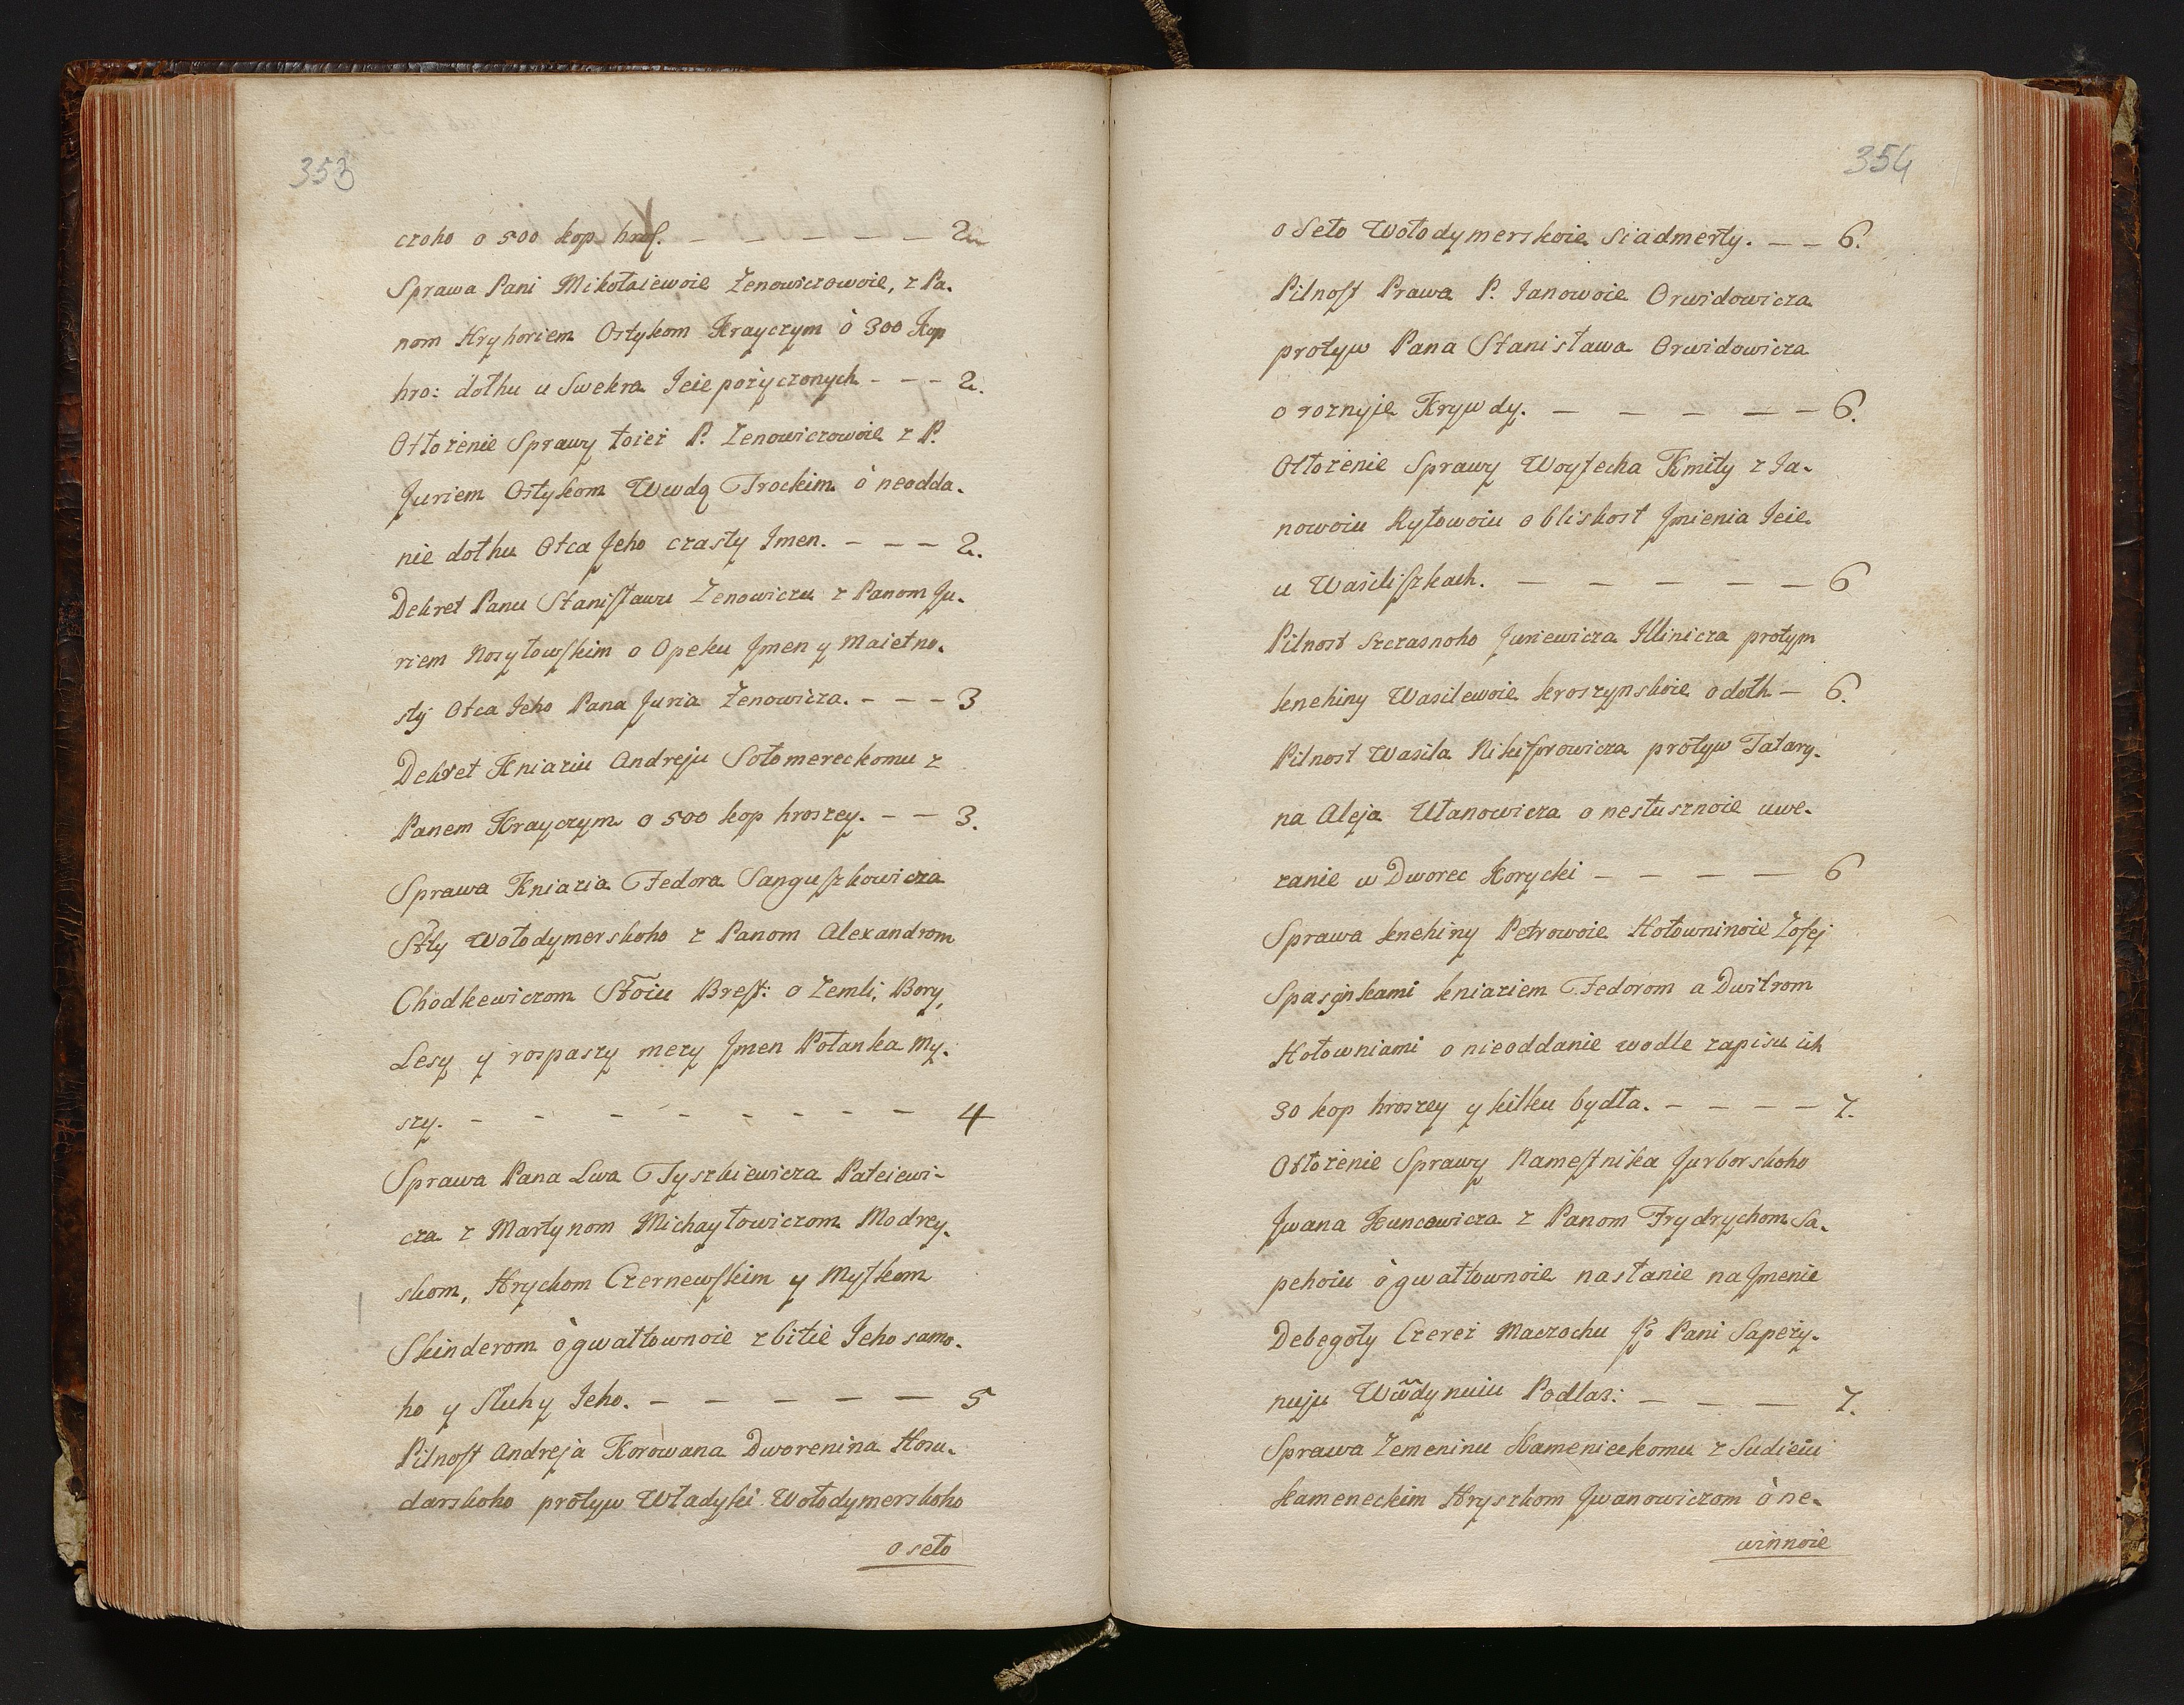 353
czoho o 500 kop hroſ. — — — — — 2
Sprawa Pani Mikołaiewoie Zenowiczowoie, z Pa-
nom Hryhoriem Ostykom Krayczym ò 300 kop
hro: dołhu u Swekra Ieie pożyczonych - - - 2.
Otłożenie Sprawy toież P. Zenowiczowoie z P.
Juriem Ostykom Wwdą Trockim ò neodda-
nie dołhu Otca Jeho czasty Imen. - - - 2.
Dekret Panu Staniſławu Zenowiczu z Panom Ju-
riem Nosyłowſkim o Opeku Jmen y Maietno-
sty Otca Jeho Pana Juria Zenowicza. - - - 3
Dekret Kniaziu Andreju Sołomereckomu z
Panem Krayczym o 500 kop hroszey. - - 3.
Sprawa Kniazia Fedora Sanguſzkowicza
Stły Wołodymerskoho z Panom Alexandrom
Chodkewiczom Stoiu Breſt: o Zemli, Bory,
Lesy y rospaszy mezy Jmen Połanka My-
szy. - - - - - - - - 4
Sprawa Pana Lwa Tyszkiewicza Pateiewi-
cza z Martynom Michayłowiczom Modrey-
skom, Hryckom Czernewſkim y Myſkom
Skinderom ò gwałtownoie zbitie Jeho samo-
ho y Sluhy Jeho. — — — — — 5
Pilnoſt Andreja Korowana Dworenina Hosu-
darskoho protyw Władyki Wołodymerskoho
o seło
354
o Seło Wołodymerskoie Siadmerty. — — 6.
Pilnoſt Prawa P. Janowoie Orwidowicza
protyw Pana Stanisława Orwidowicza
o roznyje Krywdy. — — — — — 6.
Otłożenie Sprawy Woytecha Kmity z Ja-
nowoiu Rytowoiu o bliskost Jmienia Ieie
u Wasiliſzkach. — — — — — 6
Pilnost Szczasnoho Juriewicza Illinicza protym
knehiny Wasilewoie kroszynskoie o dołh — 6.
Pilnost Wasila Nikifprowicza protyw Tatary-
na Aleja Ułanowicza o nesłusznoie uwe-
zanie w Dworec Korycki — — — — 6
Sprawa knehiny Petrowoie Hołowninoie Zofej
Spasynkami kniaziem Fedorom a Dmitrom
Hołowniami o nieoddanie wodle zapisu ich
30 kop hroszey y kilku bydła. — — — — 7.
Otłożenie Sprawy Nameſtnika Jurborskoho
Jwana Kuncewicza z Panom Frydrychom Sa-
pehoiu ò gwałtownoie nasłanie na Jmenie
Debegoły Czerez Maczochu Jo Pani Sapeży-
nuju Wwdynuiu Podlas: — — — 7.
Sprawa Zemeninu Kamenieckomu z Sudieiu
Kameneckim Hryszkom Jwanowiczom ò ne-
winnoie